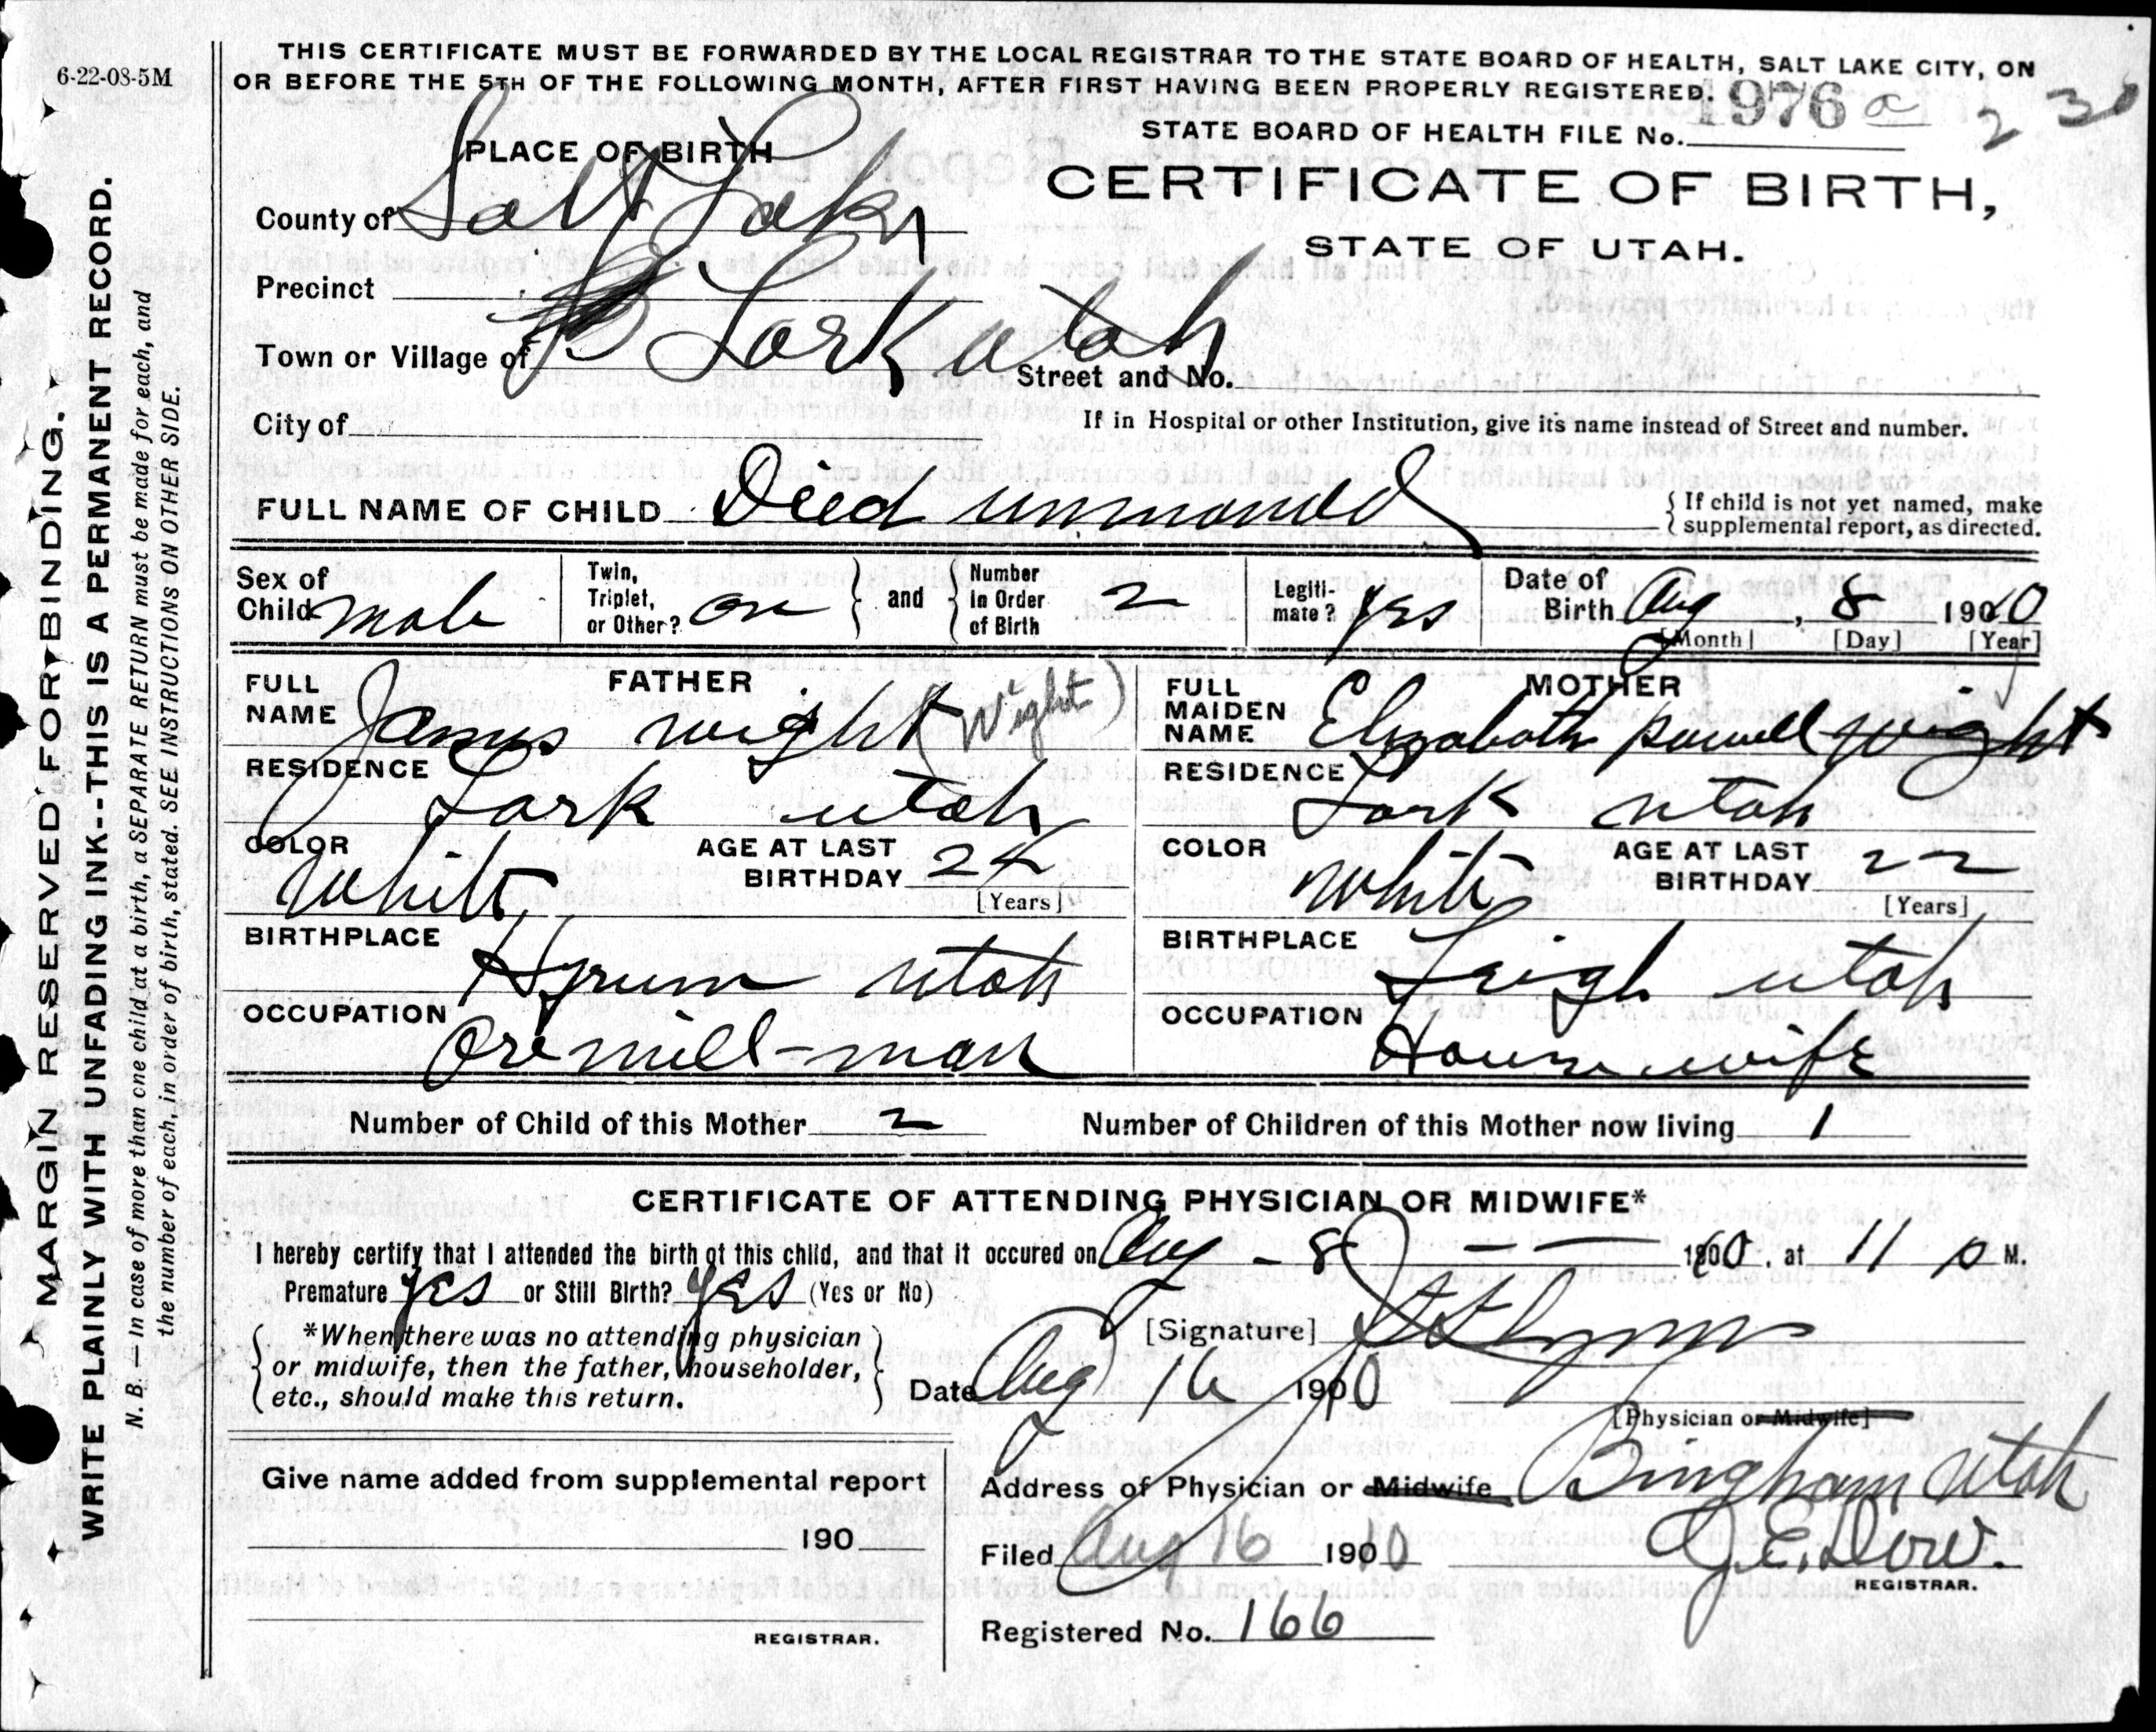 6-22-08-5M
THIS CERTIFICATE MUST BE FORWARDED BY THE LOCAL REGISTRAR TO THE STATE BOARD OF HEALTH, SALT LAKE CITY, ON
OR BEFORE THE 5TH OF THE FOLLOWING MONTH, AFTER FIRST HAVING BEEN PROPERLY REGISTERED.
STATE BOARD OF HEALTH FILE No. 1976 a
2 30
PLACE OF BIRTH
CERTIFICATE OF BIRTH,
STATE OF UTAH.
County of Salt Lake
Precinct
Town or Village of Lark Utah
Street and No.
City of
If in Hospital or other Institution, give its name instead of Street and number.
FULL NAME OF CHILD Died unnamed
{ If child is not yet named, make
{ supplemental report, as directed.
Sex of Child male
Twin, Triplet, or Other? one } and { Number in Order of Birth 2
Legiti-mate? yes
Date of Birth Aug, 8 1910
[Month] [Day] [Year]
FATHER
FULL NAME James Wight (Wight)
RESIDENCE Lark Utah
COLOR White
AGE AT LAST BIRTHDAY 24 [Years]
BIRTHPLACE Hyrum Utah
OCCUPATION Ore mill-man
MOTHER
FULL MAIDEN NAME Elizabeth Powell Wight
RESIDENCE Lark Utah
COLOR White
AGE AT LAST BIRTHDAY 22 [Years]
BIRTHPLACE Leigh Utah
OCCUPATION House wife
Number of Child of this Mother 2
Number of Children of this Mother now living 1
CERTIFICATE OF ATTENDING PHYSICIAN OR MIDWIFE*
I hereby certify that I attended the birth of this child, and that it occured on Aug - 8 1910, at 11 p M.
Premature Yes or Still Birth? Yes (Yes or No)
*When there was no attending physician
or midwife, then the father, householder,
etc., should make this return.
[Signature]
Date Aug 16 1910
[Physician or Midwife]
Address of Physician or Midwife Bingham Utah
Give name added from supplemental report
190
REGISTRAR.
Filed Aug 16 1910 J. E. Dow.
REGISTRAR.
Registered No. 166
MARGIN RESERVED FOR BINDING.
WRITE PLAINLY WITH UNFADING INK--THIS IS A PERMANENT RECORD.
N. B. — In case of more than one child at a birth, a SEPARATE RETURN must be made for each, and
the number of each, in order of birth, stated. SEE INSTRUCTIONS ON OTHER SIDE.